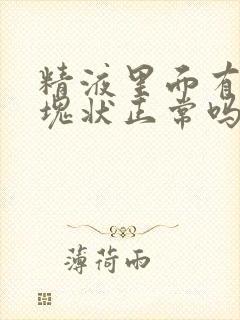 精液里面有
块状正常吗
薄荷雨